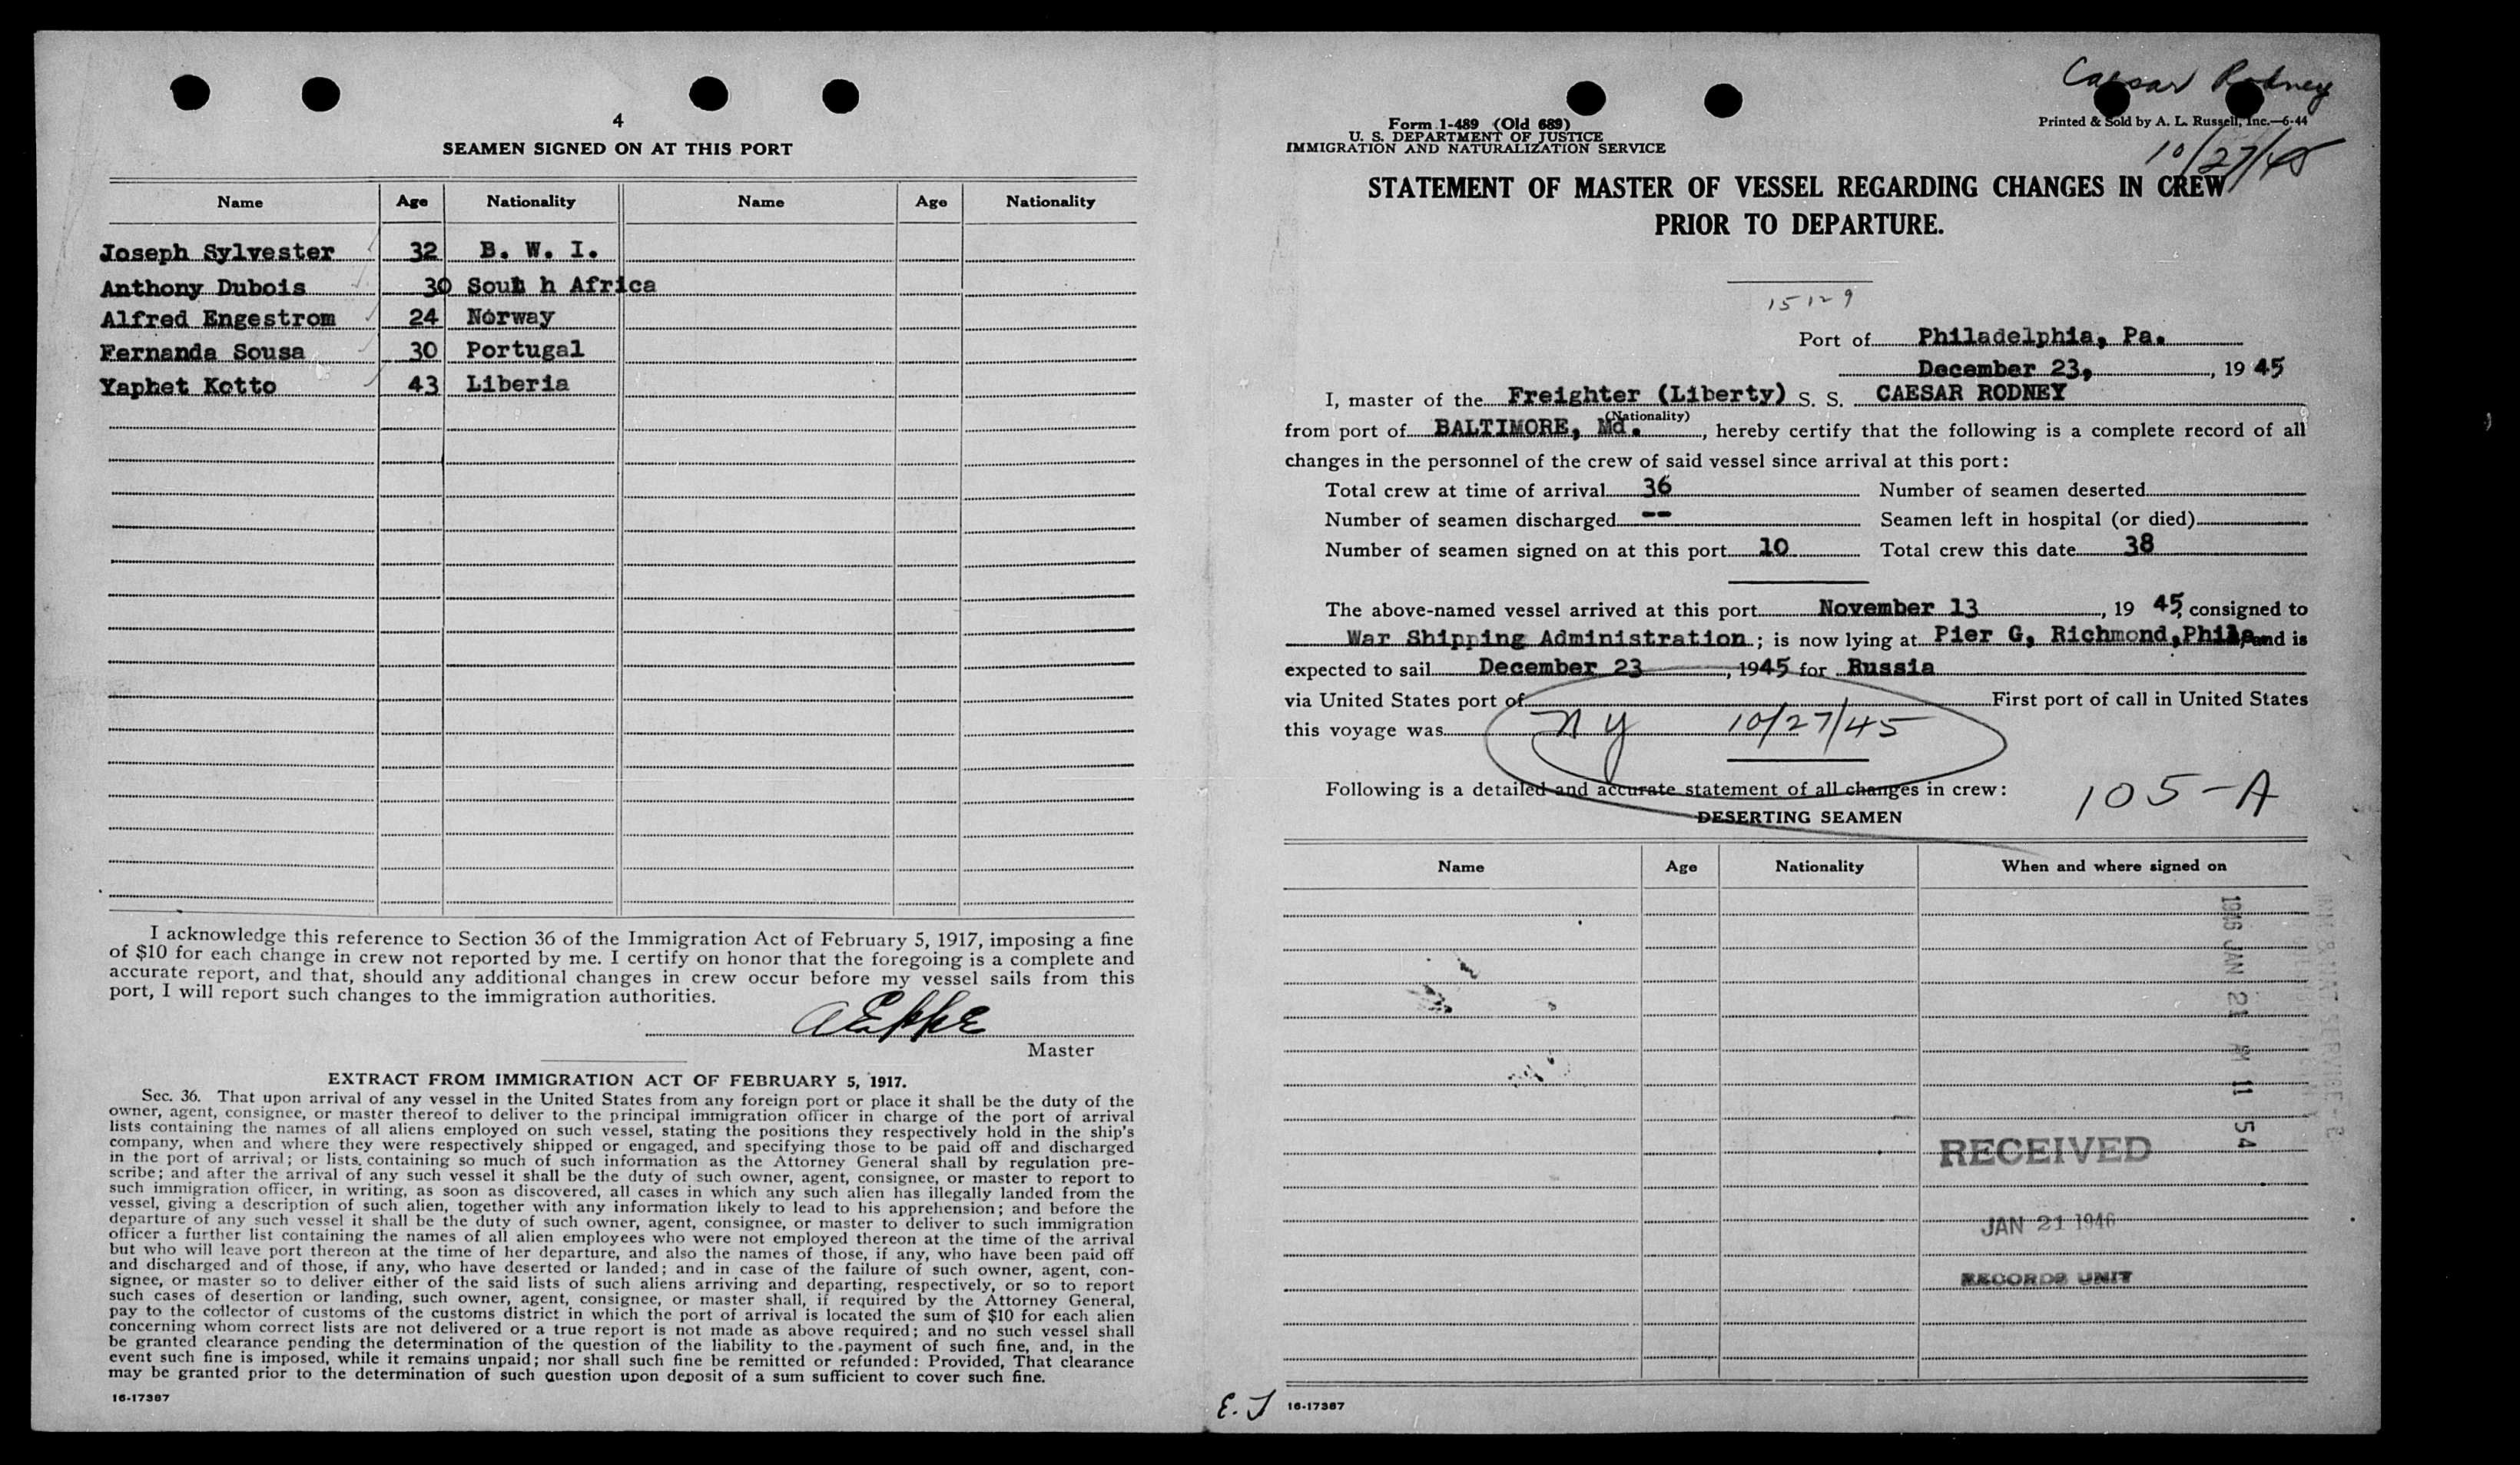 4
SEAMEN SIGNED ON AT THIS PORT
Name Age Nationality Name Age Nationality
Joseph Sylvester 32 B. W. I.
Anthony Dubois 30 South h Africa
Alfred Engestrom 24 Norway
Fernanda Sousa 30 Portugal
Yaphet Kotto 43 Liberia
I acknowledge this reference to Section 36 of the Immigration Act of February 5, 1917, imposing a fine
of $10 for each change in crew not reported by me. I certify on honor that the foregoing is a complete and
accurate report, and that, should any additional changes in crew occur before my vessel sails from this
port, I will report such changes to the immigration authorities.
Master
EXTRACT FROM IMMIGRATION ACT OF FEBRUARY 5, 1917.
Sec. 36. That upon arrival of any vessel in the United States from any foreign port or place it shall be the duty of the
owner, agent, consignee, or master thereof to deliver to the principal immigration officer in charge of the port of arrival
lists containing the names of all aliens employed on such vessel, stating the positions they respectively hold in the ship's
company, when and where they were respectively shipped or engaged, and specifying those to be paid off and discharged
in the port of arrival; or lists containing so much of such information as the Attorney General shall by regulation pre-
scribe; and after the arrival of any such vessel it shall be the duty of such owner, agent, consignee, or master to report to
such immigration officer, in writing, as soon as discovered, all cases in which any such alien has illegally landed from the
vessel, giving a description of such alien, together with any information likely to lead to his apprehension; and before the
departure of any such vessel it shall be the duty of such owner, agent, consignee, or master to deliver to such immigration
officer a further list containing the names of all alien employees who were not employed thereon at the time of the arrival
but who will leave port thereon at the time of her departure, and also the names of those, if any, who have been paid off
and discharged and of those, if any, who have deserted or landed; and in case of the failure of such owner, agent, con-
signee, or master so to deliver either of the said lists of such aliens arriving and departing, respectively, or so to report
such cases of desertion or landing, such owner, agent, consignee, or master shall, if required by the Attorney General,
pay to the collector of customs of the customs district in which the port of arrival is located the sum of $10 for each alien
concerning whom correct lists are not delivered or a true report is not made as above required; and no such vessel shall
be granted clearance pending the determination of the question of the liability to the payment of such fine, and, in the
event such fine is imposed, while it remains unpaid; nor shall such fine be remitted or refunded: Provided, That clearance
may be granted prior to the determination of such question upon deposit of a sum sufficient to cover such fine.
16-17387
Caesar Rodney
Form 1-489 (Old 689)
U. S. DEPARTMENT OF JUSTICE
IMMIGRATION AND NATURALIZATION SERVICE
Printed & Sold by A. L. Russell, Inc.—6-44
10/27/45
STATEMENT OF MASTER OF VESSEL REGARDING CHANGES IN CREW
PRIOR TO DEPARTURE.
15129
Port of Philadelphia, Pa.
December 23, , 19 45
I, master of the Freighter (Liberty) S. S. CAESAR RODNEY
(Nationality)
from port of BALTIMORE, Md. , hereby certify that the following is a complete record of all
changes in the personnel of the crew of said vessel since arrival at this port:
Total crew at time of arrival 36 Number of seamen deserted
Number of seamen discharged -- Seamen left in hospital (or died)
Number of seamen signed on at this port 10 Total crew this date 38
The above-named vessel arrived at this port November 13 , 19 45, consigned to
War Shipping Administration ; is now lying at Pier G, Richmond,Phila, and is
expected to sail December 23 , 1945 for Russia
via United States port of First port of call in United States
this voyage was N Y 10/27/45
Following is a detailed and accurate statement of all changes in crew:
105-A
DESERTING SEAMEN
Name Age Nationality When and where signed on
1946 JAN 21 11 54
RECEIVED
JAN 21 1946
RECORDS UNIT
E. J
16-17387